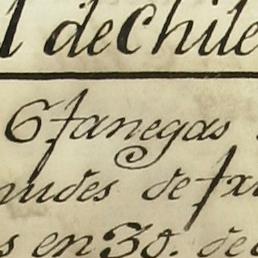 l de Chile
6 fanegas
nudes de tr
s en 30. de